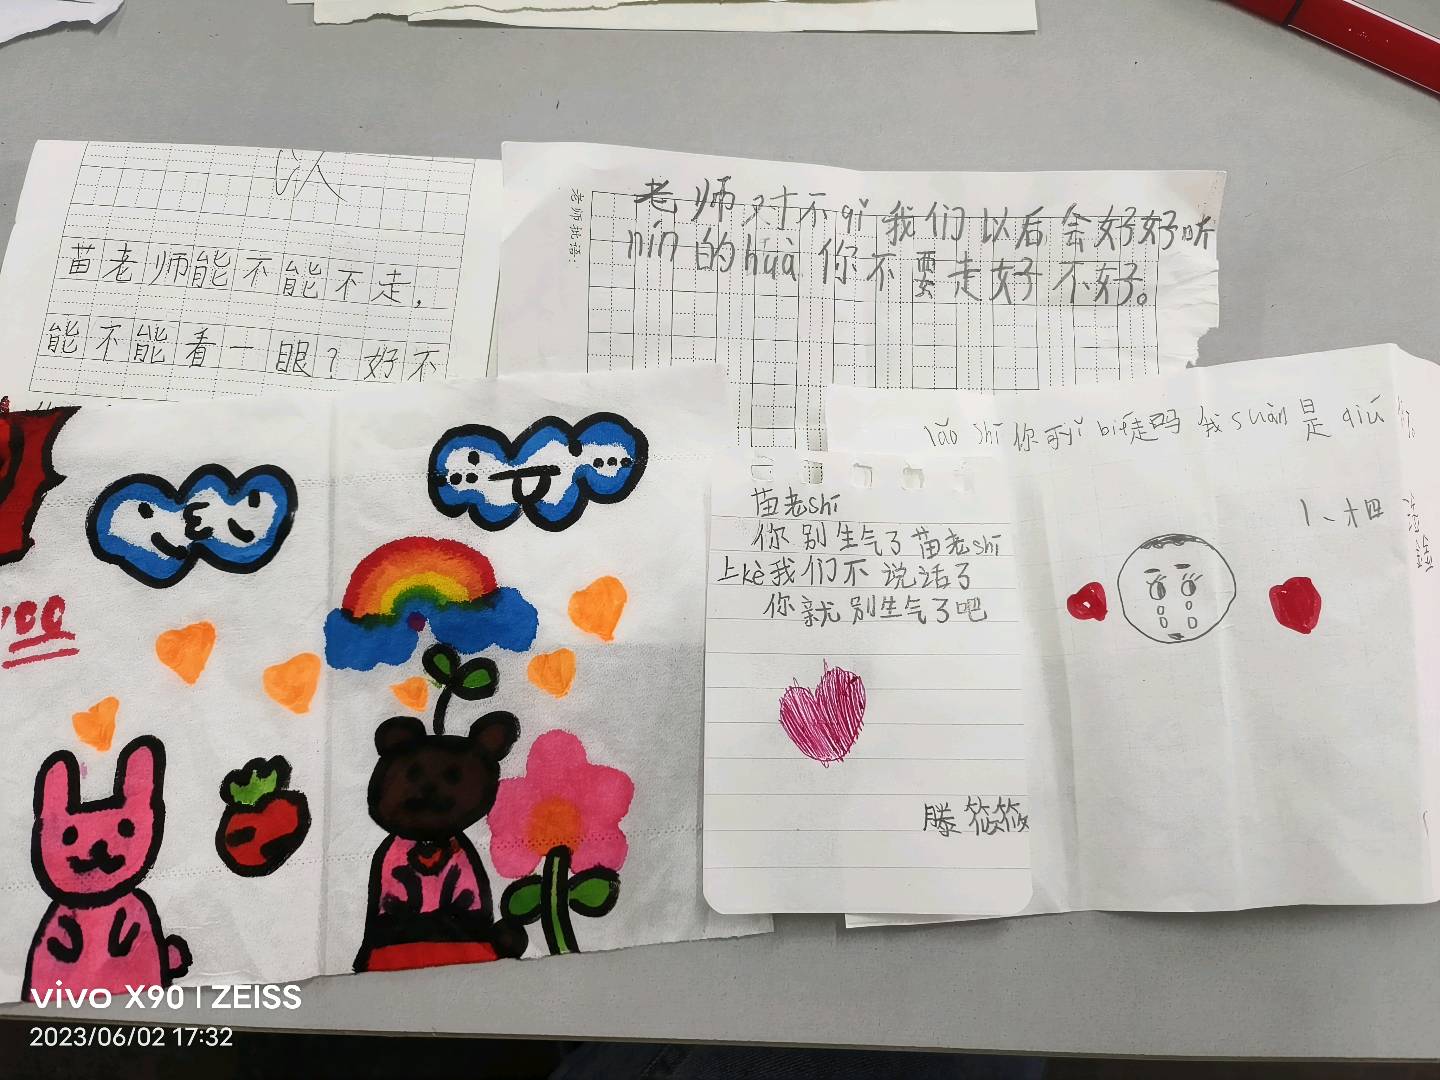 苗老师能不能不走，
能不能看一眼？好不
老师对不qǐ我们以后会好好听
nín的huà你不要走好不好。
老师对不
lǎo shī 你可yǐ bié走吗 我 suàn 是 qiú
苗老shī
你别生气了苗老shī
上kè我们不说话了
你就别生气了吧
滕悠悠
100
vivo X90 | ZEISS
2023/06/02 17:32